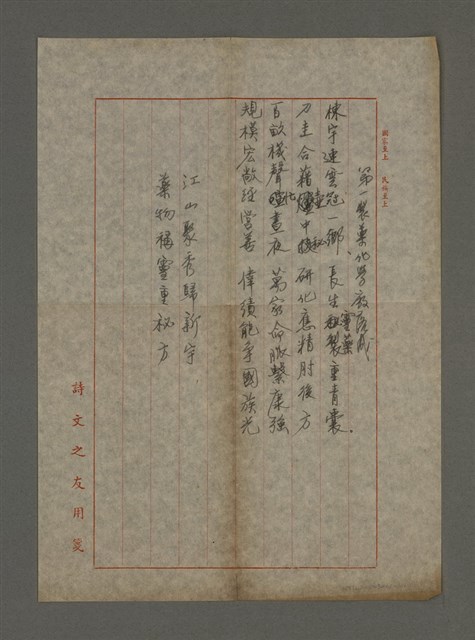 國家至上 民族至上
第一製藥化學廠落成
棟宇連雲冠一鄉 長生靈藥重青囊
刀圭合藉壺中秘 研化應精肘後方
百畝機聲喧晝夜 萬家命脈繫康強
規模宏敞經營善 偉績能爭國族光
江山聚秀歸新宇
藥物稱靈重秘方
詩文之友用箋